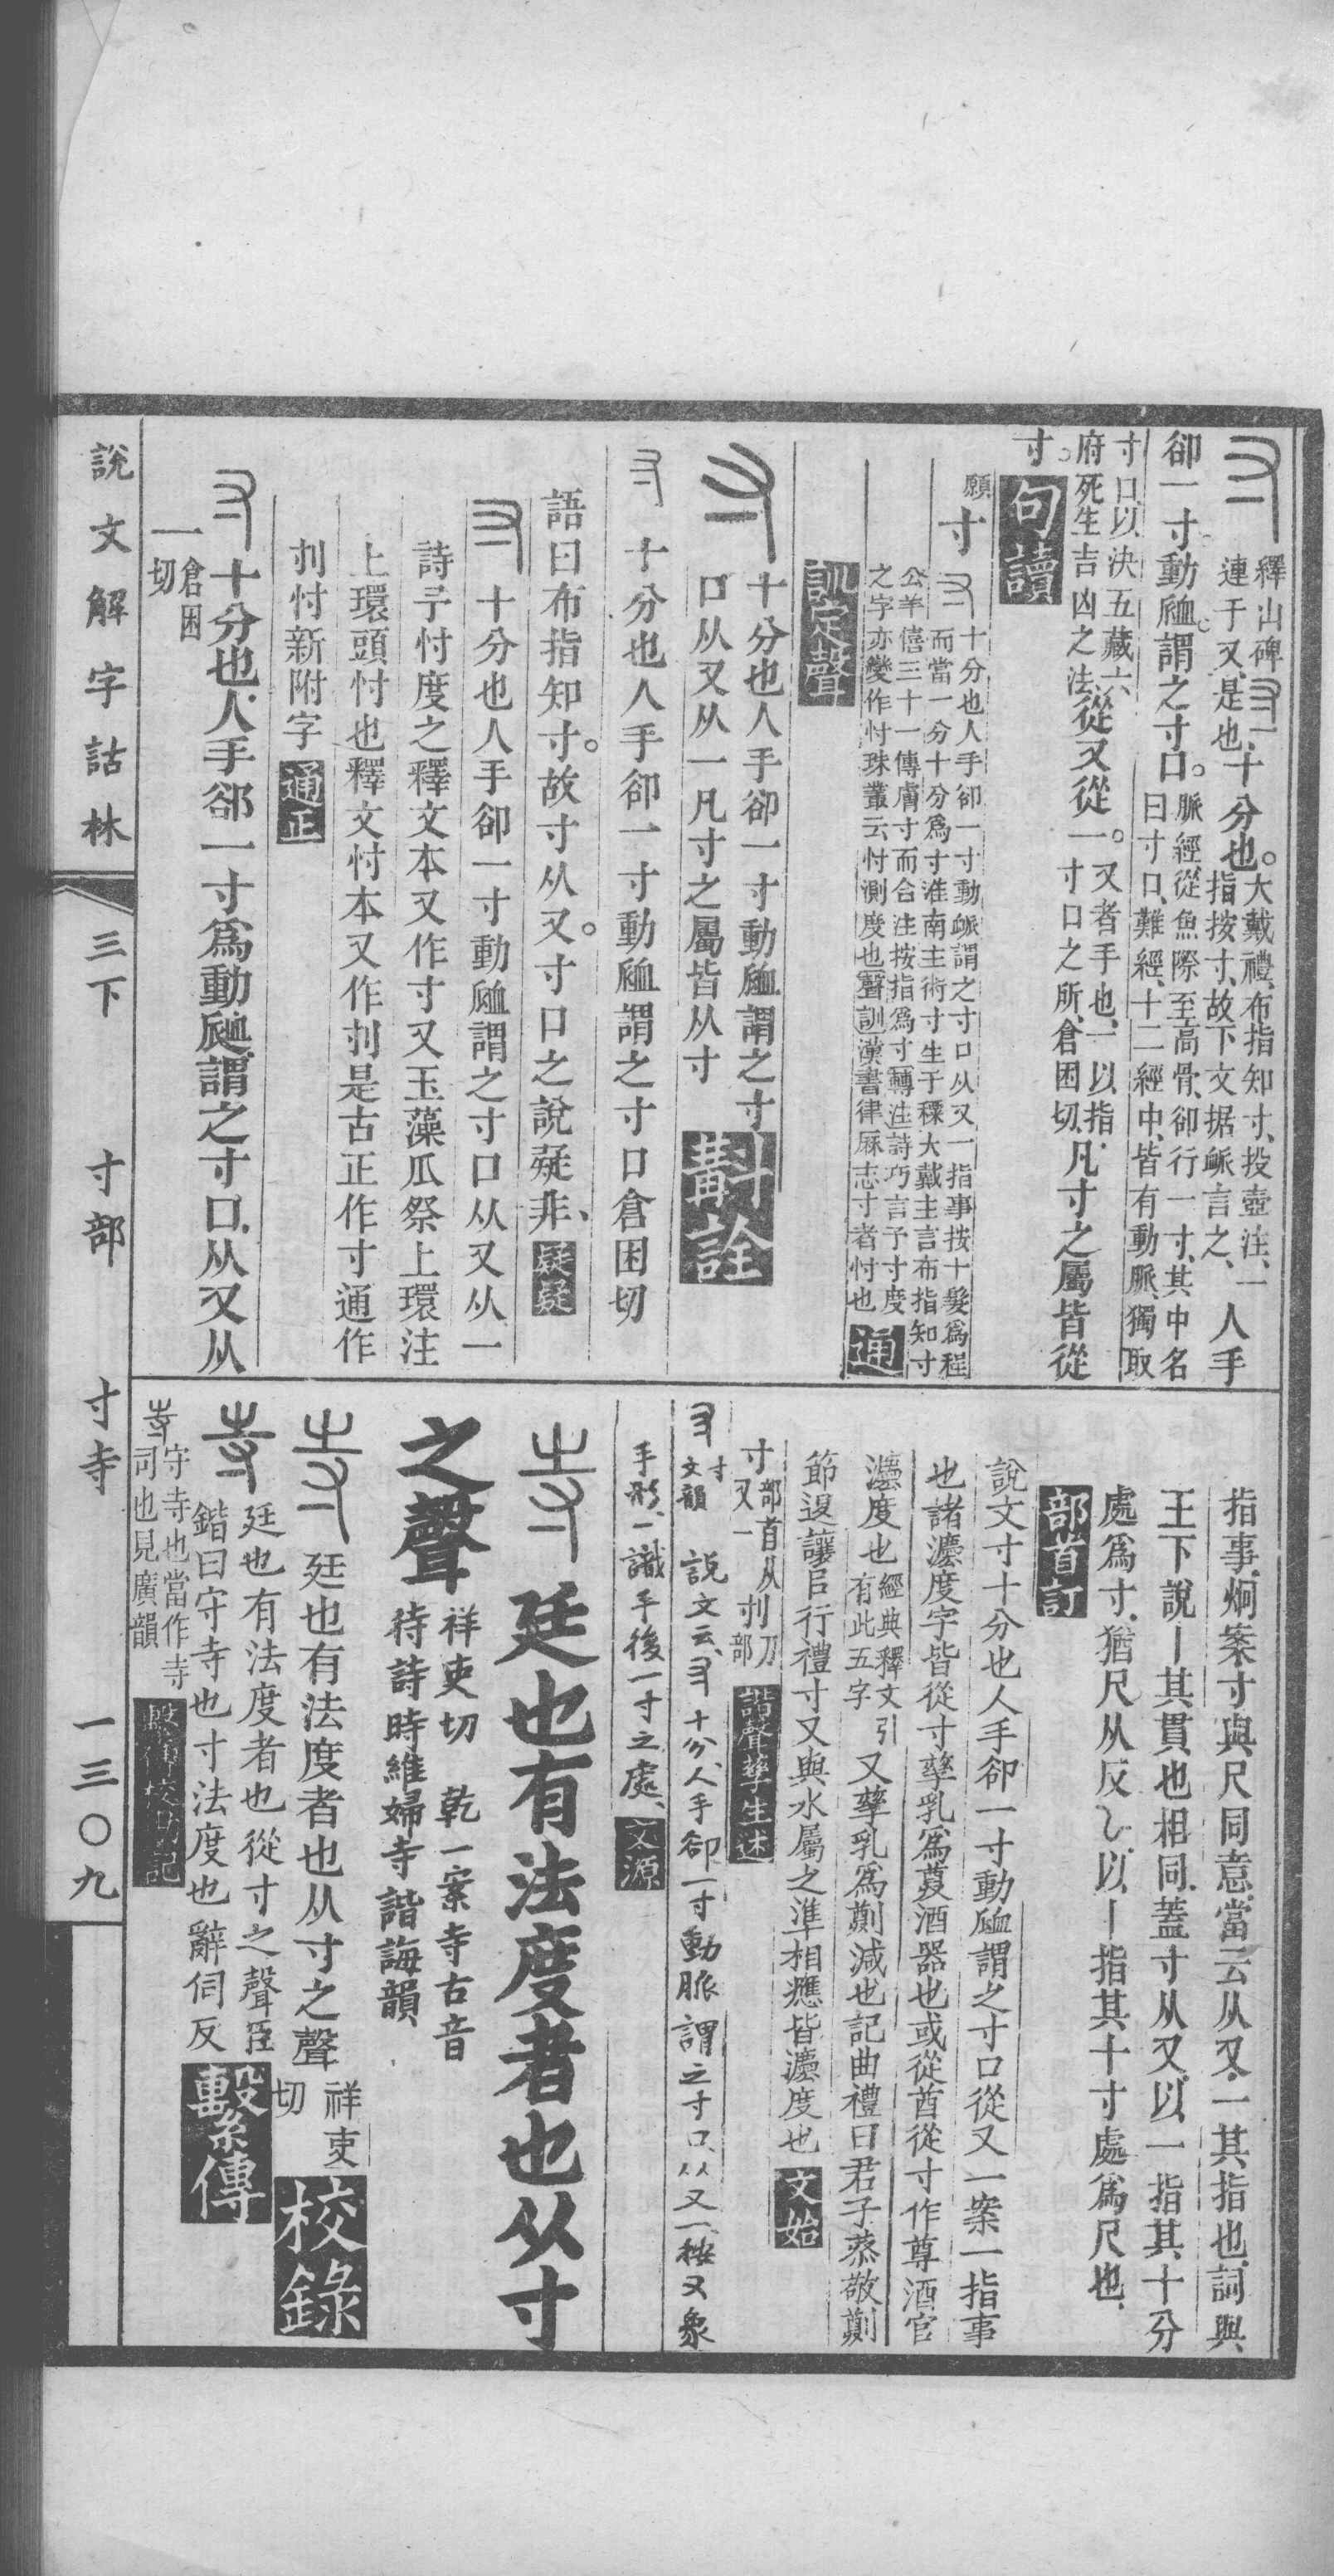 釋山碑
連于又是也
十分也。
大戴禮、布指知寸、投壺注、一
指按寸、故下文据𧖴言之、
人手
卻一寸動𧖴謂之寸口。
脈經從魚際至高骨、卻行一寸、其中名
曰寸口、難經、十二經中、皆有動脈、獨取
寸口、以決五藏六
府死生吉凶之法、
從又從一。
又者手也、一以指
寸口之所、倉困切、
凡寸之屬皆從
寸。
句讀
願
寸
十分也人手卻一寸動𧖴謂之寸口从又一指事按十髮爲程
而當一分十分爲寸淮南主術寸生于𥝩大戴主言布指知寸
公羊僖三十一傳膚寸而合注按指爲寸轉注詩巧言予寸度
之字亦變作忖珠叢云忖測度也聲訓漢書律厤志寸者忖也
通
訓定聲
十分也人手卻一寸動𧖴謂之寸
口从又从一凡寸之屬皆从寸
斠詮
十分也人手卻一寸動𧖴謂之寸口倉困切
語曰布指知寸。故寸从又。寸口之說疑非、
疑疑
十分也人手卻一寸動𧖴謂之寸口从又从一
詩予忖度之釋文本又作寸又玉藻瓜祭上環注
上環頭忖也釋文忖本又作刌是古正作寸通作
刌忖新附字
通正
十分也人手郤一寸爲動𧖴謂之寸口从又从
一
倉困
切
指事、炯案寸與尺同意、當云从又、一其指也、詞與
王下說丨其貫也相同、蓋寸从又、以一指其十分
處爲寸、猶尺从反乀、以丨指其十寸處爲尺也、
部首訂
說文寸十分也人手卻一寸動𧖴謂之寸口從又一案一指事
也諸灋度字皆從寸孳乳爲𢍜酒器也或從酋從寸作尊酒官
灋度也
經典釋文引
有此五字
又孳乳爲劕減也記曲禮曰君子恭敬劕
節退讓㠯行禮寸又與水屬之準相應皆灋度也
文始
寸
部首从
又一
刌
刀
部
諧聲孳生述
寸
文韻
說文云、
十分、人手卻一寸動脈謂之寸口、从又一、按又象
手形、一識手後一寸之處、
文源
廷也有法度者也从寸
之聲
祥吏切
乾一案寺古音
待詩時維婦寺諧誨韻
廷也有法度者也从寸之聲
祥吏
切
校錄
廷也有法度者也從寸之聲臣
鍇曰守寺也寸法度也
辭伺反
繫傳
守寺也當作寺
司也見廣韻
繫傳校勘記
說文解字詁林
三下
寸部
寸寺
一三〇九